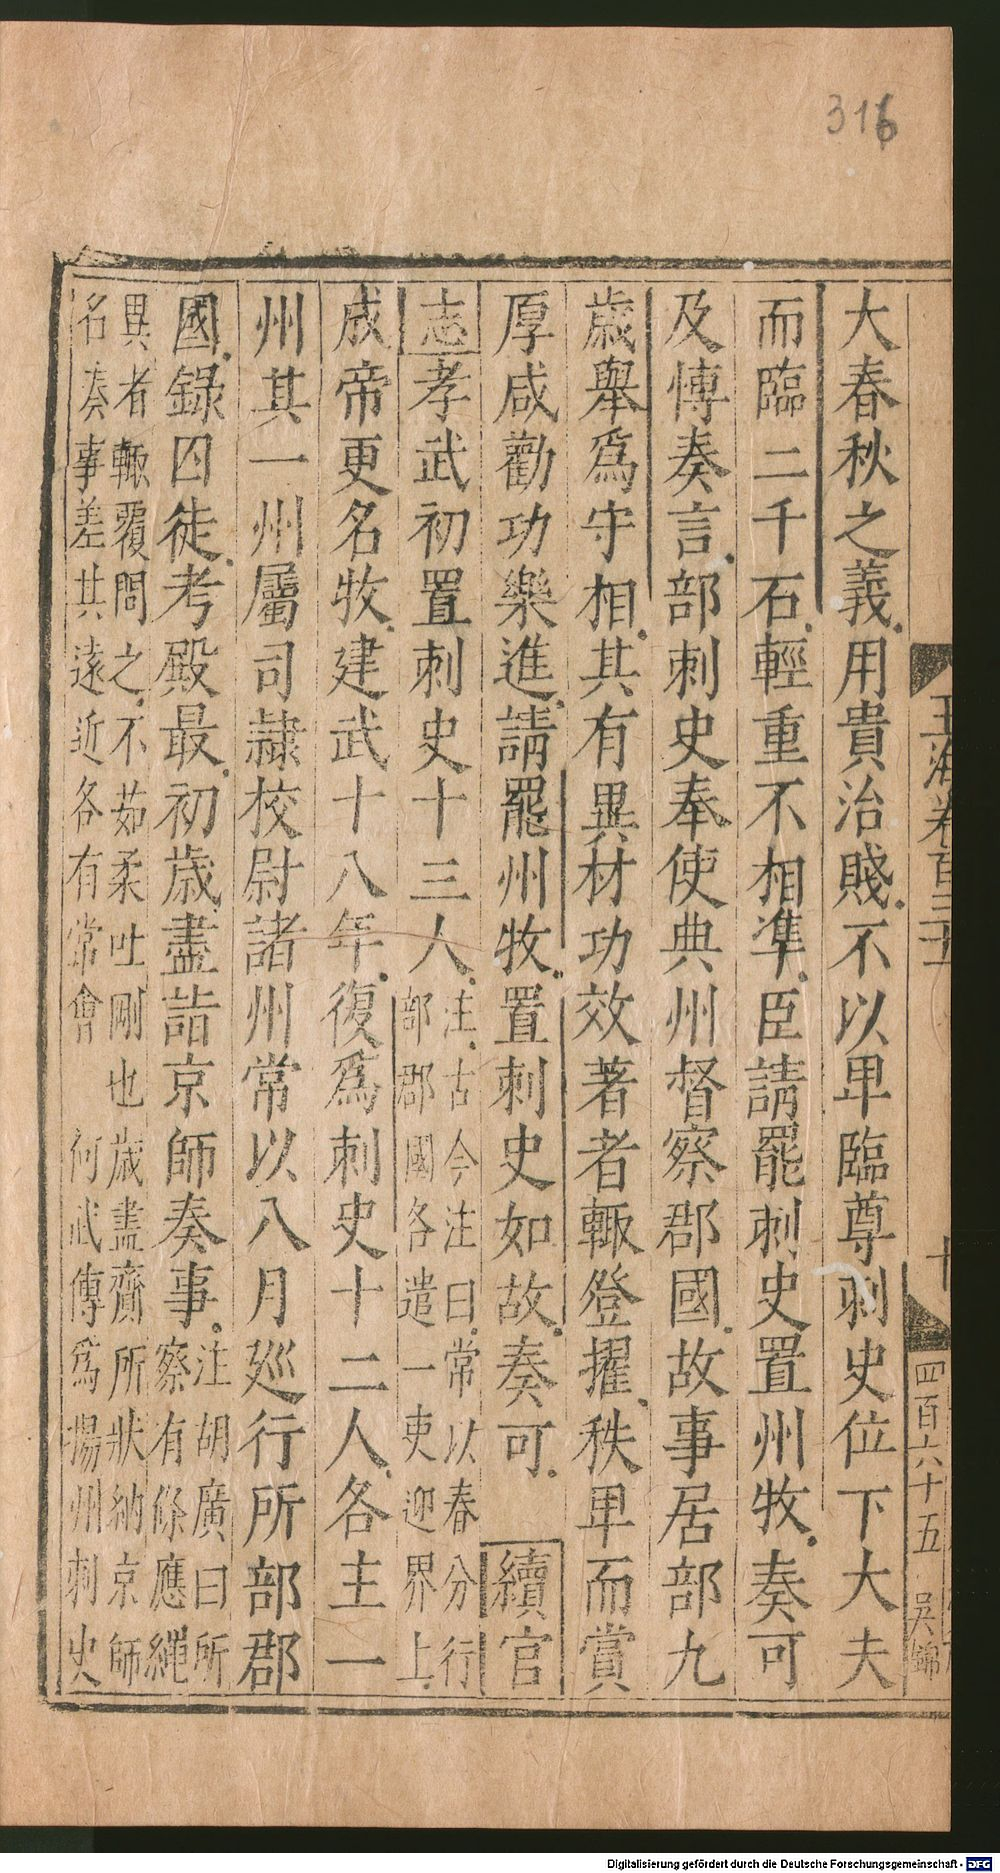 316
玉海卷百三十
十
四百六十五
吳錦
大春秋之義用貴治賤不以卑臨尊刺史位下大夫
而臨二千石輕重不相準臣請罷刺史置州牧奏可
及愽奏言部刺史奉使典州督察郡國故事居部九
歲舉爲守相其有異材功效著者輒登擢秩卑而賞
厚咸勸功樂進請罷州牧置刺史如故奏可續官
志孝武初置刺史十三人注古今注曰常以春分行部郡國各遣一吏迎界上
成帝更名牧建武十八年復爲刺史十二人各主一
州其一州屬司隷校尉諸州常以八月廵行所部郡
國錄囚徒考殿最初歲盡詣京師奏事注胡廣曰所察有條應繩
異者輒覆問之不茹柔吐剛也歲盡齎所狀納京師
名奏事差其遠近各有常會何武傳爲揚州刺史
Digitalisierung gefördert durch die Deutsche Forschungsgemeinschaft - DFG